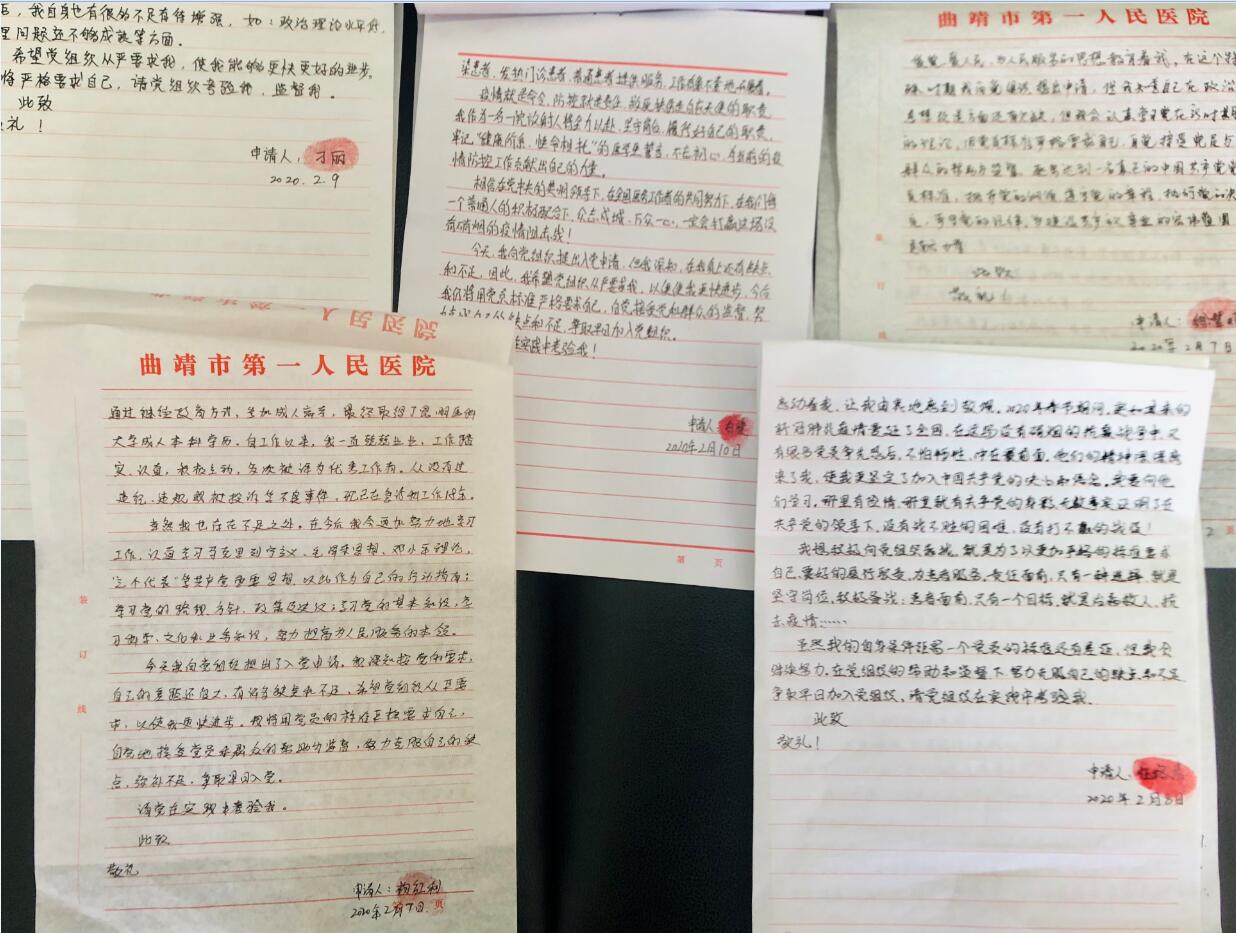 我自身也有很多不足有待增强，如：政治理论水平低，
问题还不够成熟等方面。
希望党组织从严要求我，使我能够更快更好的进步。
将严格要求自己，请党组织考验我，监督我。
此致
礼！
申请人：刁丽
2020.2.9
染患者、发热门诊患者、普通患者提供服务，
疫情就是命令，防控就是责任，救死扶伤是白衣天使的职责，
我作为一名一院设时人将全力以赴，坚守岗位，履行好自己的职责，
牢记“健康所系，性命相托”的医学生誓言，不忘初心，为我们的疫
情防控工作贡献出自己的力量。
相信在党中央的英明领导下，在全国医务工作者的共同努力下，在我们每
一个普通人的积极配合下，众志成城，万众一心，一定会打赢这场没
有硝烟的疫情阻击战！
今天，我向党组织提出入党申请，但我深知，在我身上还有缺点
和不足，因此，我希望党组织从严要求我，以便使我更快进步，今后
我仍将用党员标准严格要求自己，自觉接受党和群众的监督，努
自己的缺点和不足，争取早日加入党组织。
在实践中考验我！
申请人：
2020年2月10日
第 页
曲靖市第一人民医院
为人民服务的思想教育着我。在这个特
殊时期我向党组织提出申请，但我知道自己在政治
思想
的理论，用党员标准严格要求自己，自觉接受党员与
群众的帮助与监督，
员标准，拥护党的纲领，遵守党的章程，
此致
敬礼
申请人：
2020年2月7日
订
线
曲靖市第一人民医院
通过继续教育方式，参加成人高考，最终取得了昆明医科
大学成人本科学历。自工作以来，我一直兢兢业业，工作踏
实、认真、积极主动，多次被评为优秀工作者。从没有过
违纪、违规或被投诉等不良事件，
当然我也存在不足之处。在今后我会更加努力地学习
工作，认真学习马克思列宁主义、毛泽东思想、邓小平理论，
“三个代表”等重要思想，以此作为自己的行动指南；
学习党的路线、方针、政策及决议；学习党的基本知识，学
习科学、文化和业务知识，努力提高为人民服务的本领。
今天我向党组织提出了入党申请。我深知按党的要求，
自己的差距还很大，有许多缺点和不足，希望党组织从严要
求，以使我更快进步。我将用党员的标准严格要求自己，
自觉地接受党员和群众的帮助与监督，努力克服自己的缺
点，弥补不足，争取早日入党。
请党在实践中考验我。
此致
敬礼
申请人：杨红利
2020年2月7日
装
订
线
感动着我，让我由衷地感到敬佩。2020年春节期间，突如其来的
新冠肺炎疫情蔓延了全国，在这场没有硝烟的抗毒战争中，又
有很多党员争先恐后，不怕牺牲，冲在最前面，他们的精神深深感
来了我，使我更坚定了加入中国共产党的决心和信念。我要向他
们学习，哪里有疫情，哪里就有共产党的身影，无数事实证明了在
共产党的领导下，没有战不胜的困难，没有打不赢的战役！
我想积极向党组织靠拢，就是为了以更加严格的标准要求
自己，更好的履行职责，为患者服务，责任面前，只有一种选择，就是
坚守岗位，积极备战；患者面前，只有一个目标，就是治病救人，抗
击疫情……
虽然我的自身条件距离一个党员的标准还有差距，但我会
继续努力，在党组织的帮助和监督下，努力克服自己的缺点和不足
争取早日加入党组织，请党组织在实践中考验我。
此致
敬礼！
申请人：
2020年2月8日
2 页